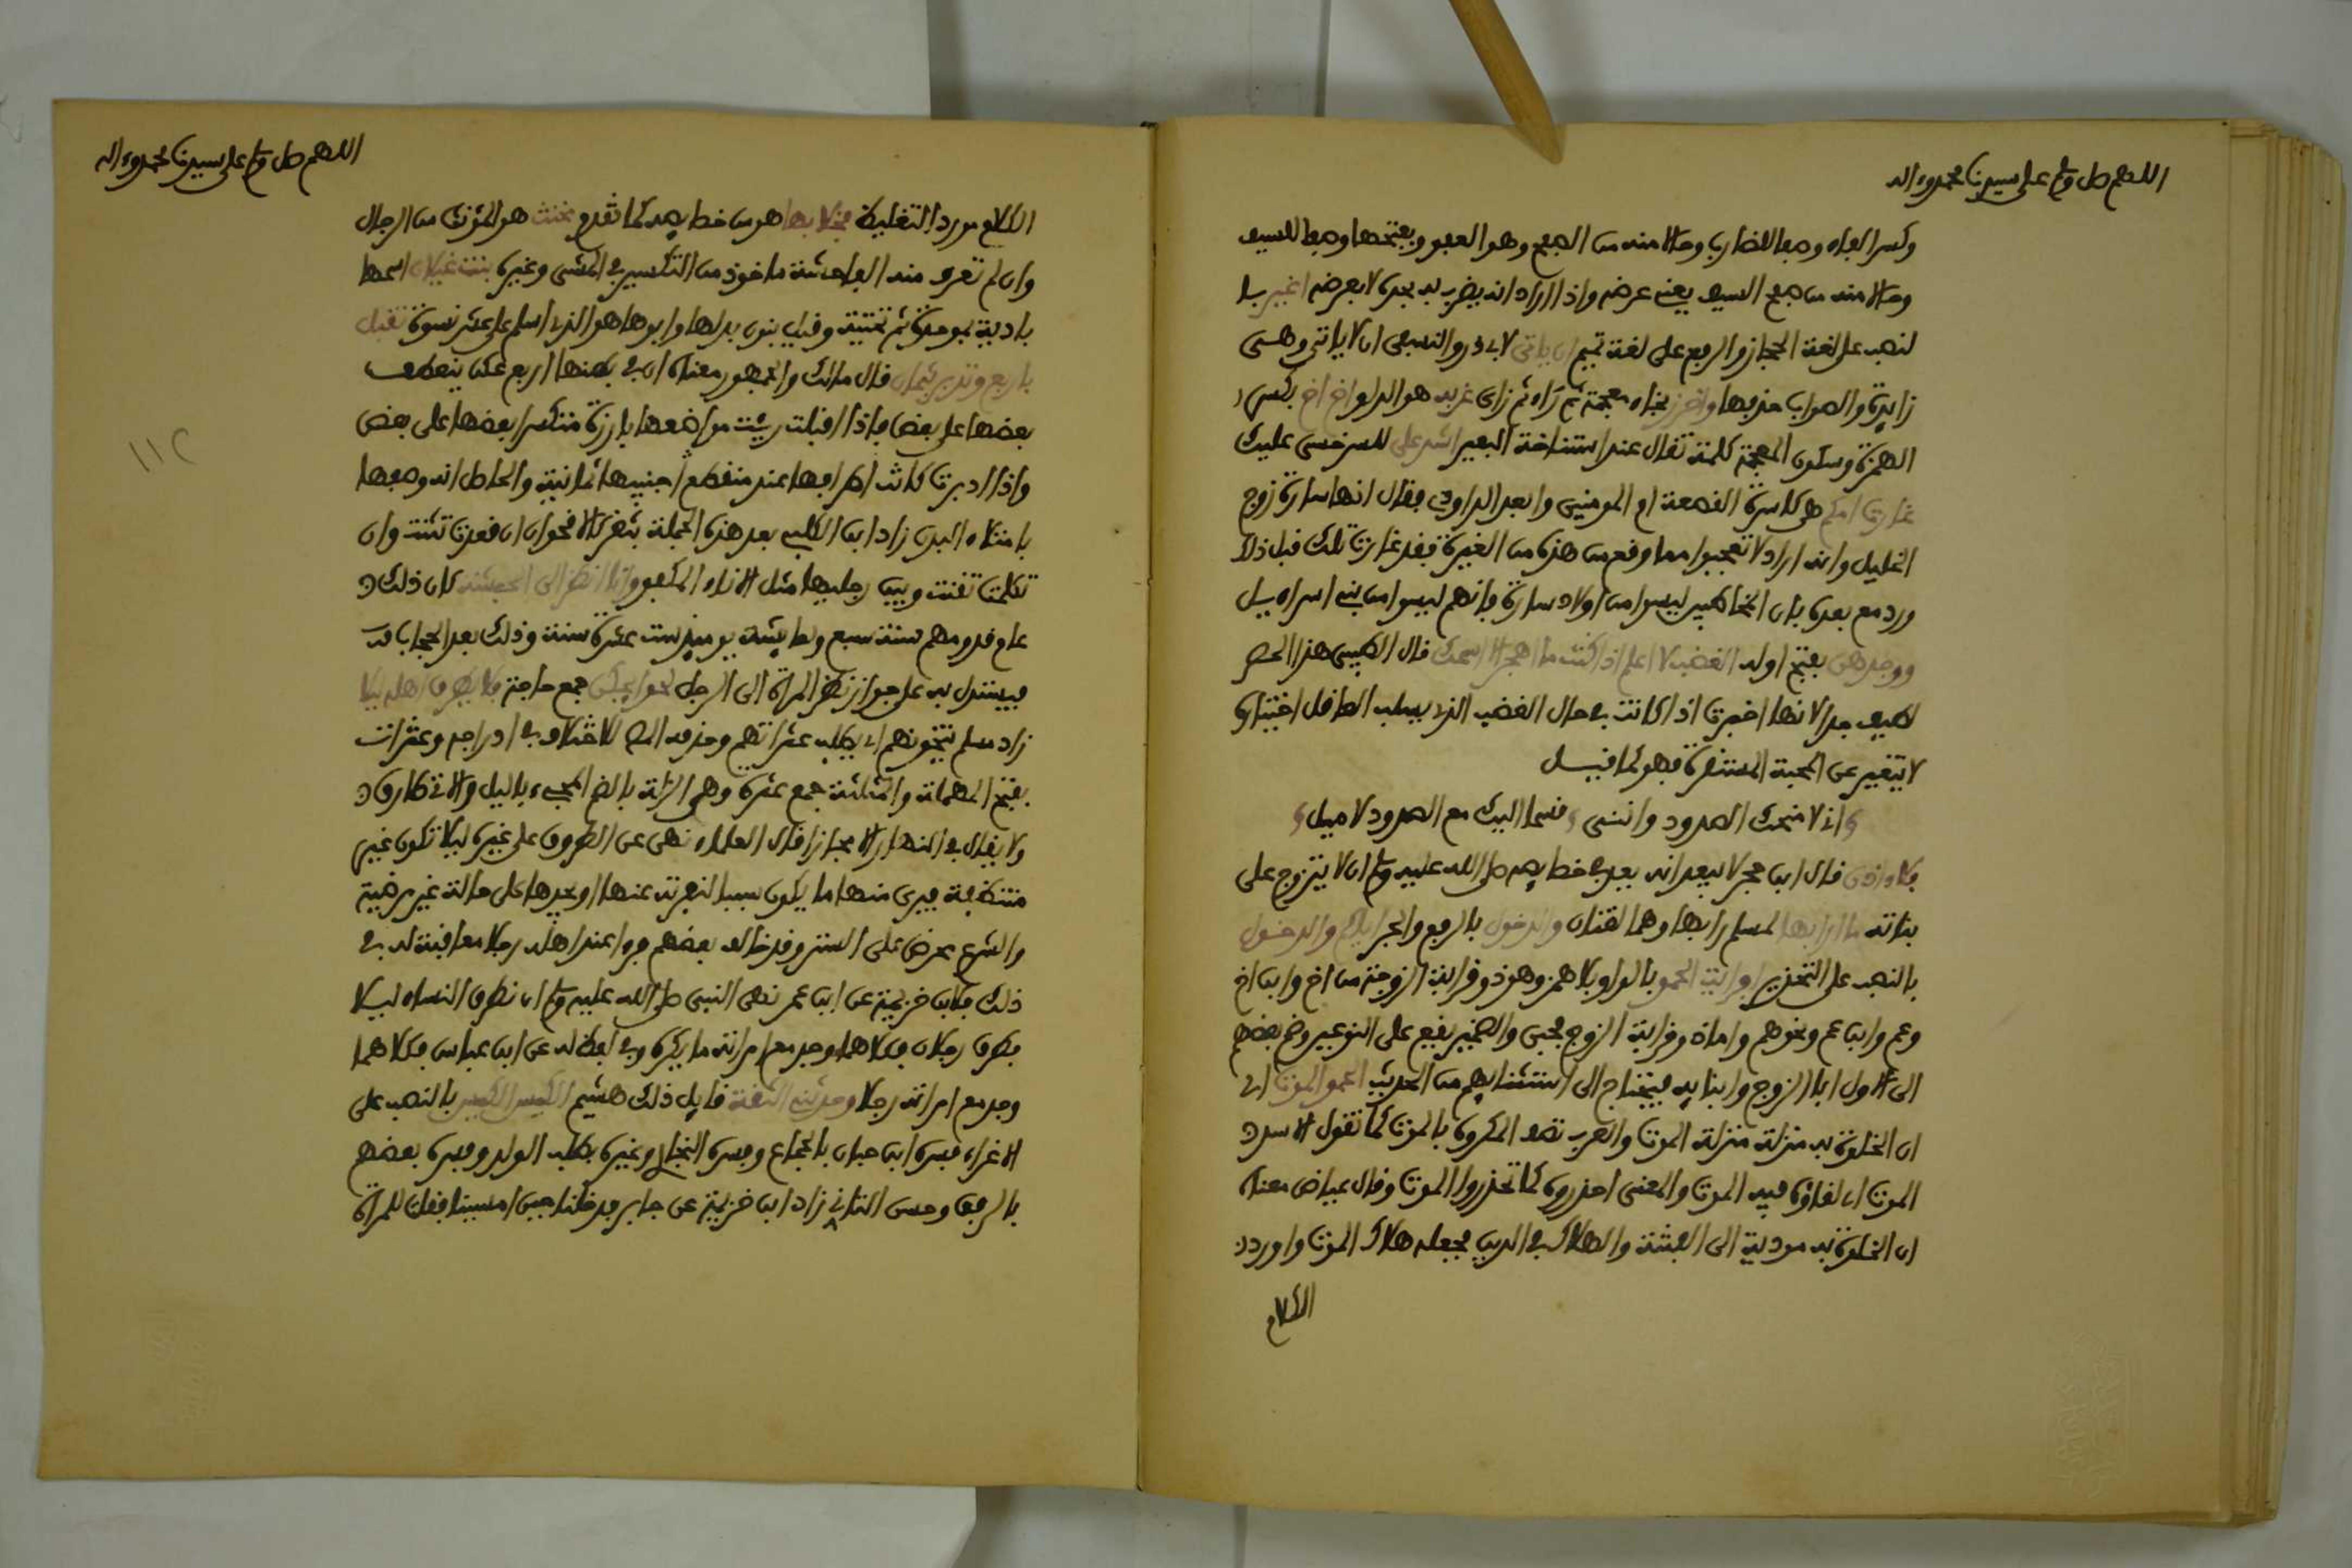 اللهم صل وسلم على سيدنا محمد وءاله
وكسر الفاء وصفا للضارب وحالا منه من الصفح وهو العفو وبفتحها وصفا للسيف
وحالا منه من صفح السيف يعني عرضه واذا اراد انه يضربه بحده لا بعرضه اغير با
لنصب على لغة الحجاز والرفع على لغة تميم ان ياتي لابي ذر والنسفي ان لا ياتي وهي
زايدة والصواب حذفها واخرز بخاء معجمة ثم راء ثم زاي غربه هو الدلو اخ اخ بكسر
الهمزة وسكون المعجمة كلمة تقال عند استناخة البعير اشد علي للسرخسي عليك
غارت امكم هي كاسرة القصعة ام المومنين وابعد الداودي فقال انها سارة زوج
الخليل وانه اراد لا تعجبوا مما وقع من هذه من الغيرة فقد غارت تلك قبل ذلك
ورد مع بعده بان المخاطبين ليسوا من اولاد سارة فانهم ليسوا من بني اسراءيل
ووجدهن بفتح اوله الغضب لا اعلم اذا كنت ما اهجر الا اسمك قال الطيبي هذا الحصر
لطيف جدا لانها اخبرت اذا كانت في حال الغضب الذي يسلب العاقل اختياره
لا يتغير عن المحبة المستقرة فهو كما قيل
اني لامنحك الصدود وانني قسما اليك مع الصدود لاميل
فلا ءاذن قال ابن حجر لا يبعد ان يعد في خصايصه صلى الله عليه وسلم ان لا يتزوج على
بناته ما ارابها لمسلم رابها وهما لغتان والدخول بالرفع والجر اياكم والدخول
بالنصب على التحذير افرايت الحمو بالواو بلا همز وهو ذو قرابة الزوجة من اخ وابن اخ
وعم وابن عم ونحوهم واما ذو قرابة الزوج فختن والصهر يقع على النوعين وضم بعضهم
الى الاول ابا الزوج وابنا به فيحتاج الى استثنايهم من الحديث الحمو الموت اي
ان الخلوة به منزلة منزلة الموت والعرب تصف المكروه بالموت كما تقول الاسد
الموت اي لقاؤه فيه الموت والمعنى احذروه كما تحذروا الموت وقال عياض معناه
ان الخلوة به مودية الى الفتنة والهلاك في الدين فجعله هلاك الموت واورد
الكلام
اللهم صل وسلم على سيدنا محمد وءاله
الكلام مورد التغليظ فخلا بها هو من خصايصه كما تقدم مخنث هو المؤنث من الرجال
وان لم تعرف منه الفاحشة ماخوذ من التكسير في المشي وغيره بنت غيلان اسمها
بادية بموحدة ثم تحتية وقيل بنون بدلها وابوها هو الذي اسلم على عشر نسوة تقبل
باربع وتدبر بثمان قال مالك والجمهور معناه ان في بطنها اربع عكن ينعطف
بعضها على بعض فاذا اقبلت رئيت مواضعها بارزة متكسرا بعضها على بعض
واذا ادبرت كانت اطرافها عند منقطع جنبيها ثمانية والحاصل انه وصفها
بامتلاء البدن زاد ابن الكلبي بعد هذه الجملة بثغر كالاقحوان ان قعدت تثنت وان
تكلمت تغنت وبين رجليها مثل الاناء المكفو وانا انظر الى الحبشة كان ذلك
عام قدومهم سنة سبع ولعايشة يوميذ ست عشرة سنة وذلك بعد الحجاب قد
فيستدل به على جواز نظر المراة الى الرجل لحوايجكن جمع حاجة فلا يطرق اهله ليلا
زاد مسلم يتخونهم او يطلب عثراتهم وحذفه المص للاختلاف في ادراجه وعثرات
بفتح المهملة والمثلثة جمع عثرة وهي الزلة بالضم المجيء بالليل والاتي طارق
ولا يقال في النهار الا مجازا قال العلماء نهى عن الطروق على غيره ليلا تكون غير
متنظفة فيرى منها ما يكون سببا لنفرته عنها او يجدها على حالة غير مرضية
والشرع محرض على الستر وقد خالف بعضهم فروا عند اهله رجلا معاقبة له في
ذلك فلابن خزيمة عن ابن عمر نهى النبي صلى الله عليه وسلم ان تطرق النساء ليلا
فطرق رجلان فكلاهما وجد مع امراته ما يكره وفي لفظ له عن ابن عباس فكلاهما
وجد مع امراته رجلا وحدثني الثقة قايل ذلك هشيم الكيس الكيس بالنصب على
الاغراء فسره ابن حبان بالجماع وفسره البخاري وغيره بطلب الولد وفسره بعضهم
بالرفق وحسن التاني زاد ابن خزيمة عن جابر فدخلنا حين امسينا فقلت للمراة
112